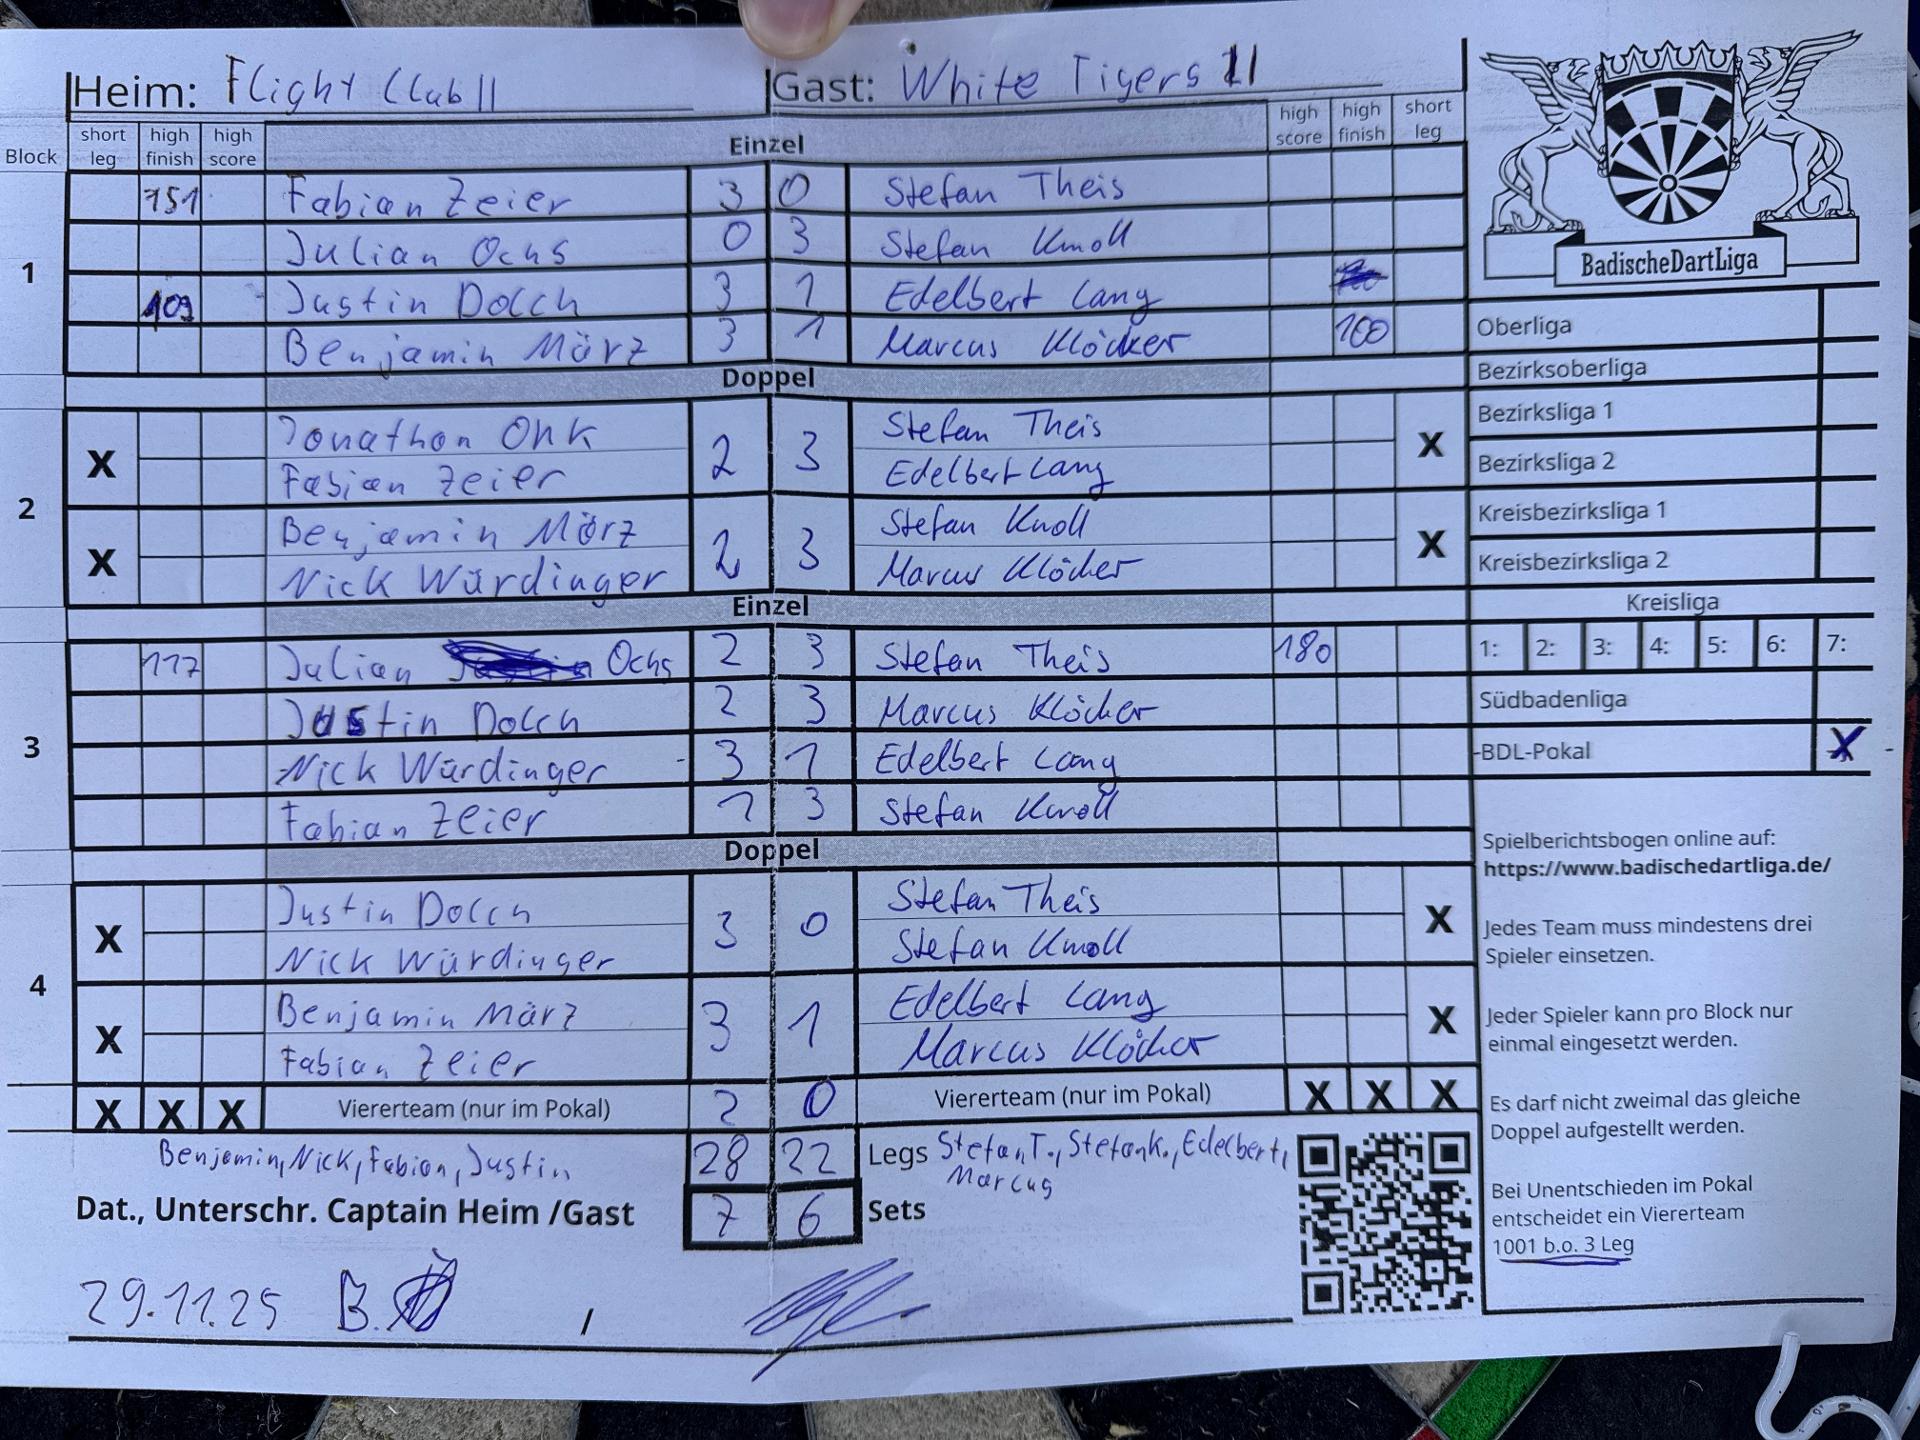 Heim: Flight Club II Gast: White Tigers II
Block short leg high finish high score Einzel high score high finish short leg
1
151 Fabian Zeier 3 0 Stefan Theis
Julian Ochs 0 3 Stefan Knoll
109 Justin Dolch 3 1 Edelbert Lang
Benjamin März 3 1 Marcus Klöcker 100
Doppel
2
X Jonathon Onk 2 3 Stefan Theis X
Fabian Zeier Edelbert Lang
X Benjamin März 2 3 Stefan Knoll X
Nick Würdinger Marcus Klöcker
Einzel
3
117 Julian Ochs 2 3 Stefan Theis 180
Justin Dolch 2 3 Marcus Klöcker
Nick Würdinger 3 1 Edelbert Lang
Fabian Zeier 1 3 Stefan Knoll
Doppel
4
X Justin Dolch 3 0 Stefan Theis X
Nick Würdinger Stefan Knoll
X Benjamin März 3 1 Edelbert Lang X
Fabian Zeier Marcus Klöcker
X X X Vierерteam (nur im Pokal) 2 0 Viererteam (nur im Pokal) X X X
Benjamin, Nick, Fabian, Justin 28 22 Legs Stefan T., Stefan K., Edelbert,
Marcus
Dat., Unterschr. Captain Heim /Gast 7 6 Sets
29.11.25 B. /
BadischeDartLiga
Oberliga
Bezirksoberliga
Bezirksliga 1
Bezirksliga 2
Kreisbezirksliga 1
Kreisbezirksliga 2
Kreisliga
1: 2: 3: 4: 5: 6: 7:
Südbadenliga
BDL-Pokal X
Spielberichtsbogen online auf:
https://www.badischedartliga.de/
Jedes Team muss mindestens drei
Spieler einsetzen.
Jeder Spieler kann pro Block nur
einmal eingesetzt werden.
Es darf nicht zweimal das gleiche
Doppel aufgestellt werden.
Bei Unentschieden im Pokal
entscheidet ein Viererteam
1001 b.o. 3 Leg